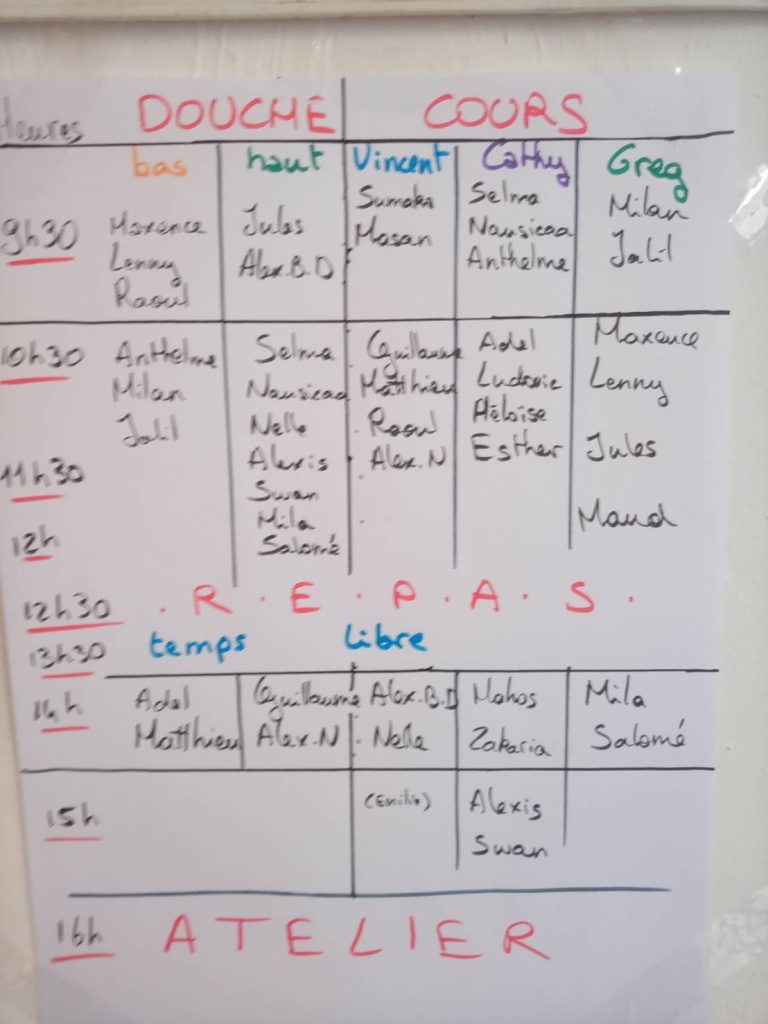 Heures DOUCHE COURS
bas haut Vincent Cathy Greg
9h30 Maxence Jules Sumaka Selma Milan
Lenny Alex.B.D Masan Nausicaa Jalil
Raoul Anthelme
10h30 Anthelme Selma Guillaume Adel Maxence
Milan Nausicaa Matthieu Ludovic Lenny
Jalil Nelle Raoul Héloïse
11h30 Alexis Alex.N Esther Jules
Swan
12h Mila Maud
Salomé
12h30 . R . E . P . A . S .
13h30 temps libre
14h Adel Guillaume Alex.B.D Mahos Mila
Matthieu Alex.N Nelle Zakaria Salomé
15h (Emilio) Alexis
Swan
16h ATELIER